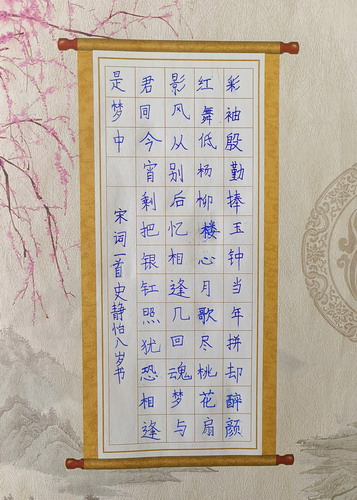 彩袖殷勤捧玉钟当年拼却醉颜
红舞低杨柳楼心月歌尽桃花扇
影风从别后忆相逢几回魂梦与
君同今宵剩把银釭照犹恐相逢
是梦中
宋词一首史静怡八岁书